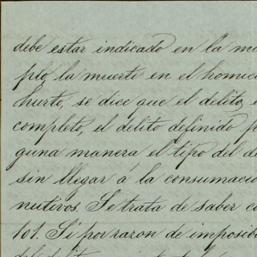 debe estar indicado en la mis
plo, la muerte en el homici
hurto, se dice que el delito, e
completo, el delito definido p
guna manera el tipo del de
sin llegar á la consumació
nutivos. Se trata de saber c
101. Si por razon de imposib